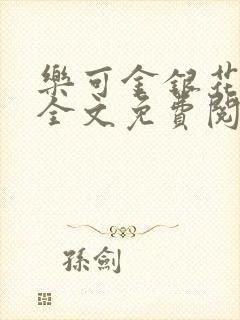 樂可金銀花
全文免費閱
孫劍